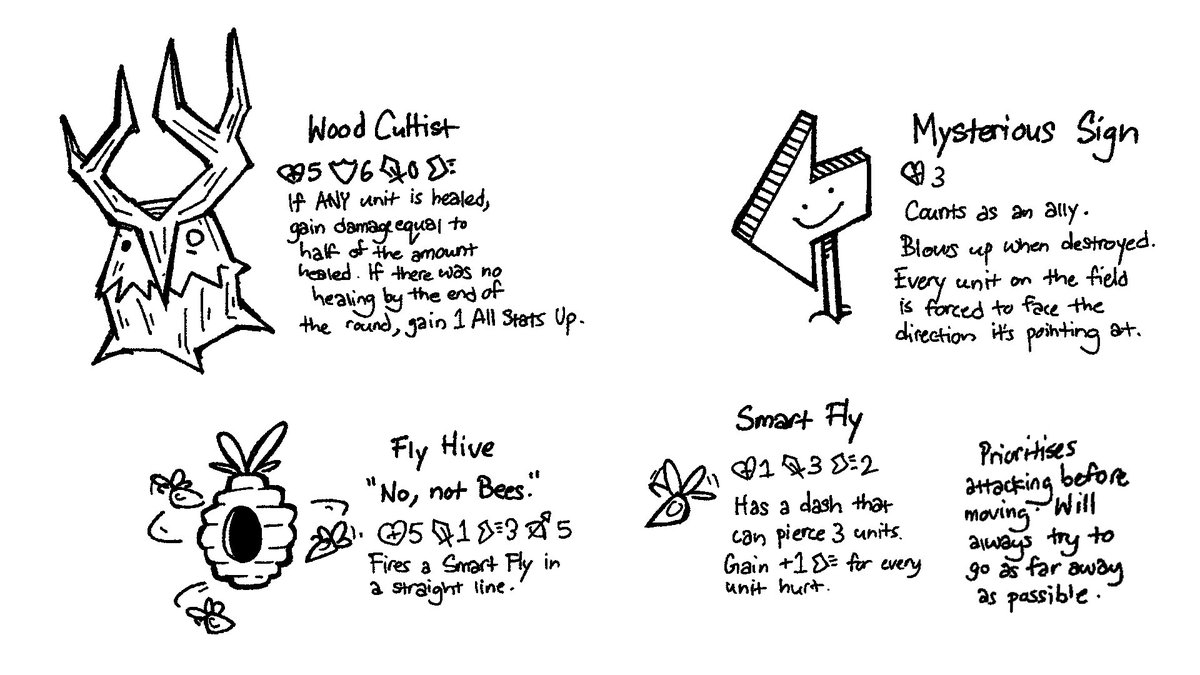 Wood Cultist
5 6 0
If ANY unit is healed,
gain damage equal to
half of the amount
healed. If there was no
healing by the end of
the round, gain 1 All Stats Up.
Mysterious Sign
3
Counts as an ally.
Blows up when destroyed.
Every unit on the field
is forced to face the
direction it's pointing at.
Fly Hive
"No, not Bees."
5 1 3 5
Fires a Smart Fly in
a straight line.
Smart Fly
1 3 2
Has a dash that
can pierce 3 units.
Gain +1 for every
unit hurt.
Prioritises
attacking before
moving. Will
always try to
go as far away
as possible.